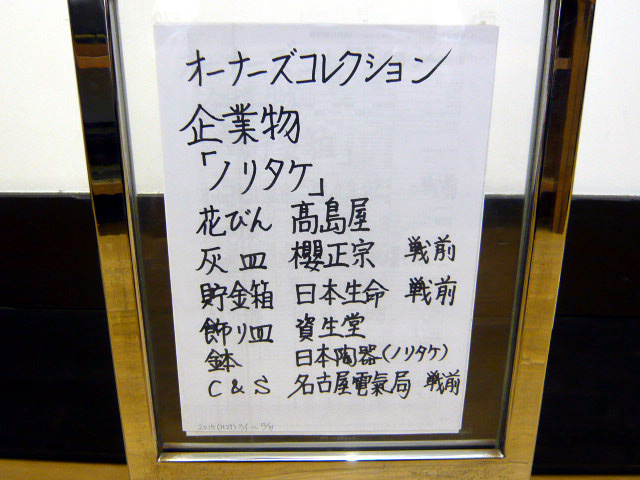 オーナーズコレクション
企業物
「ノリタケ」
花びん 髙島屋
灰皿 櫻正宗 戦前
貯金箱 日本生命 戦前
飾り皿 資生堂
鉢 日本陶器(ノリタケ)
C&S 名古屋電氣局 戦前